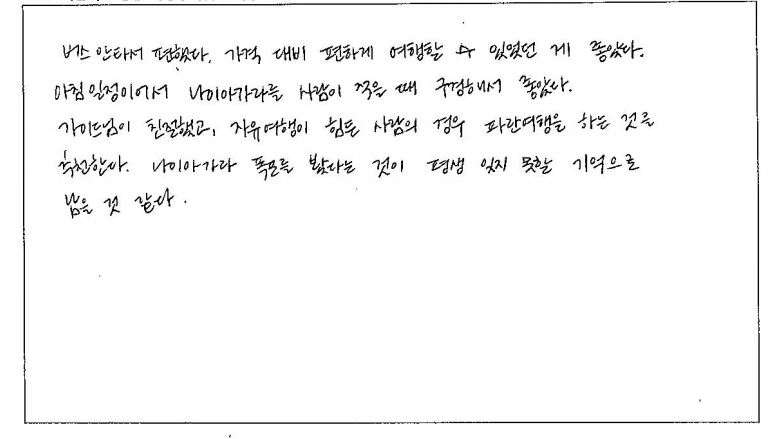 버스 안타서 편했다. 가격 대비 편하게 여행할 수 있었던 게 좋았다.
아침일정이어서 나이아가라를 사람이 적을 때 구경해서 좋았다.
가이드님이 친절했고, 자유여행이 힘든 사람의 경우 파란여행을 하는 것을
추천한다. 나이아가라 폭포를 봤다는 것이 평생 잊지 못할 기억으로
남을 것 같다.